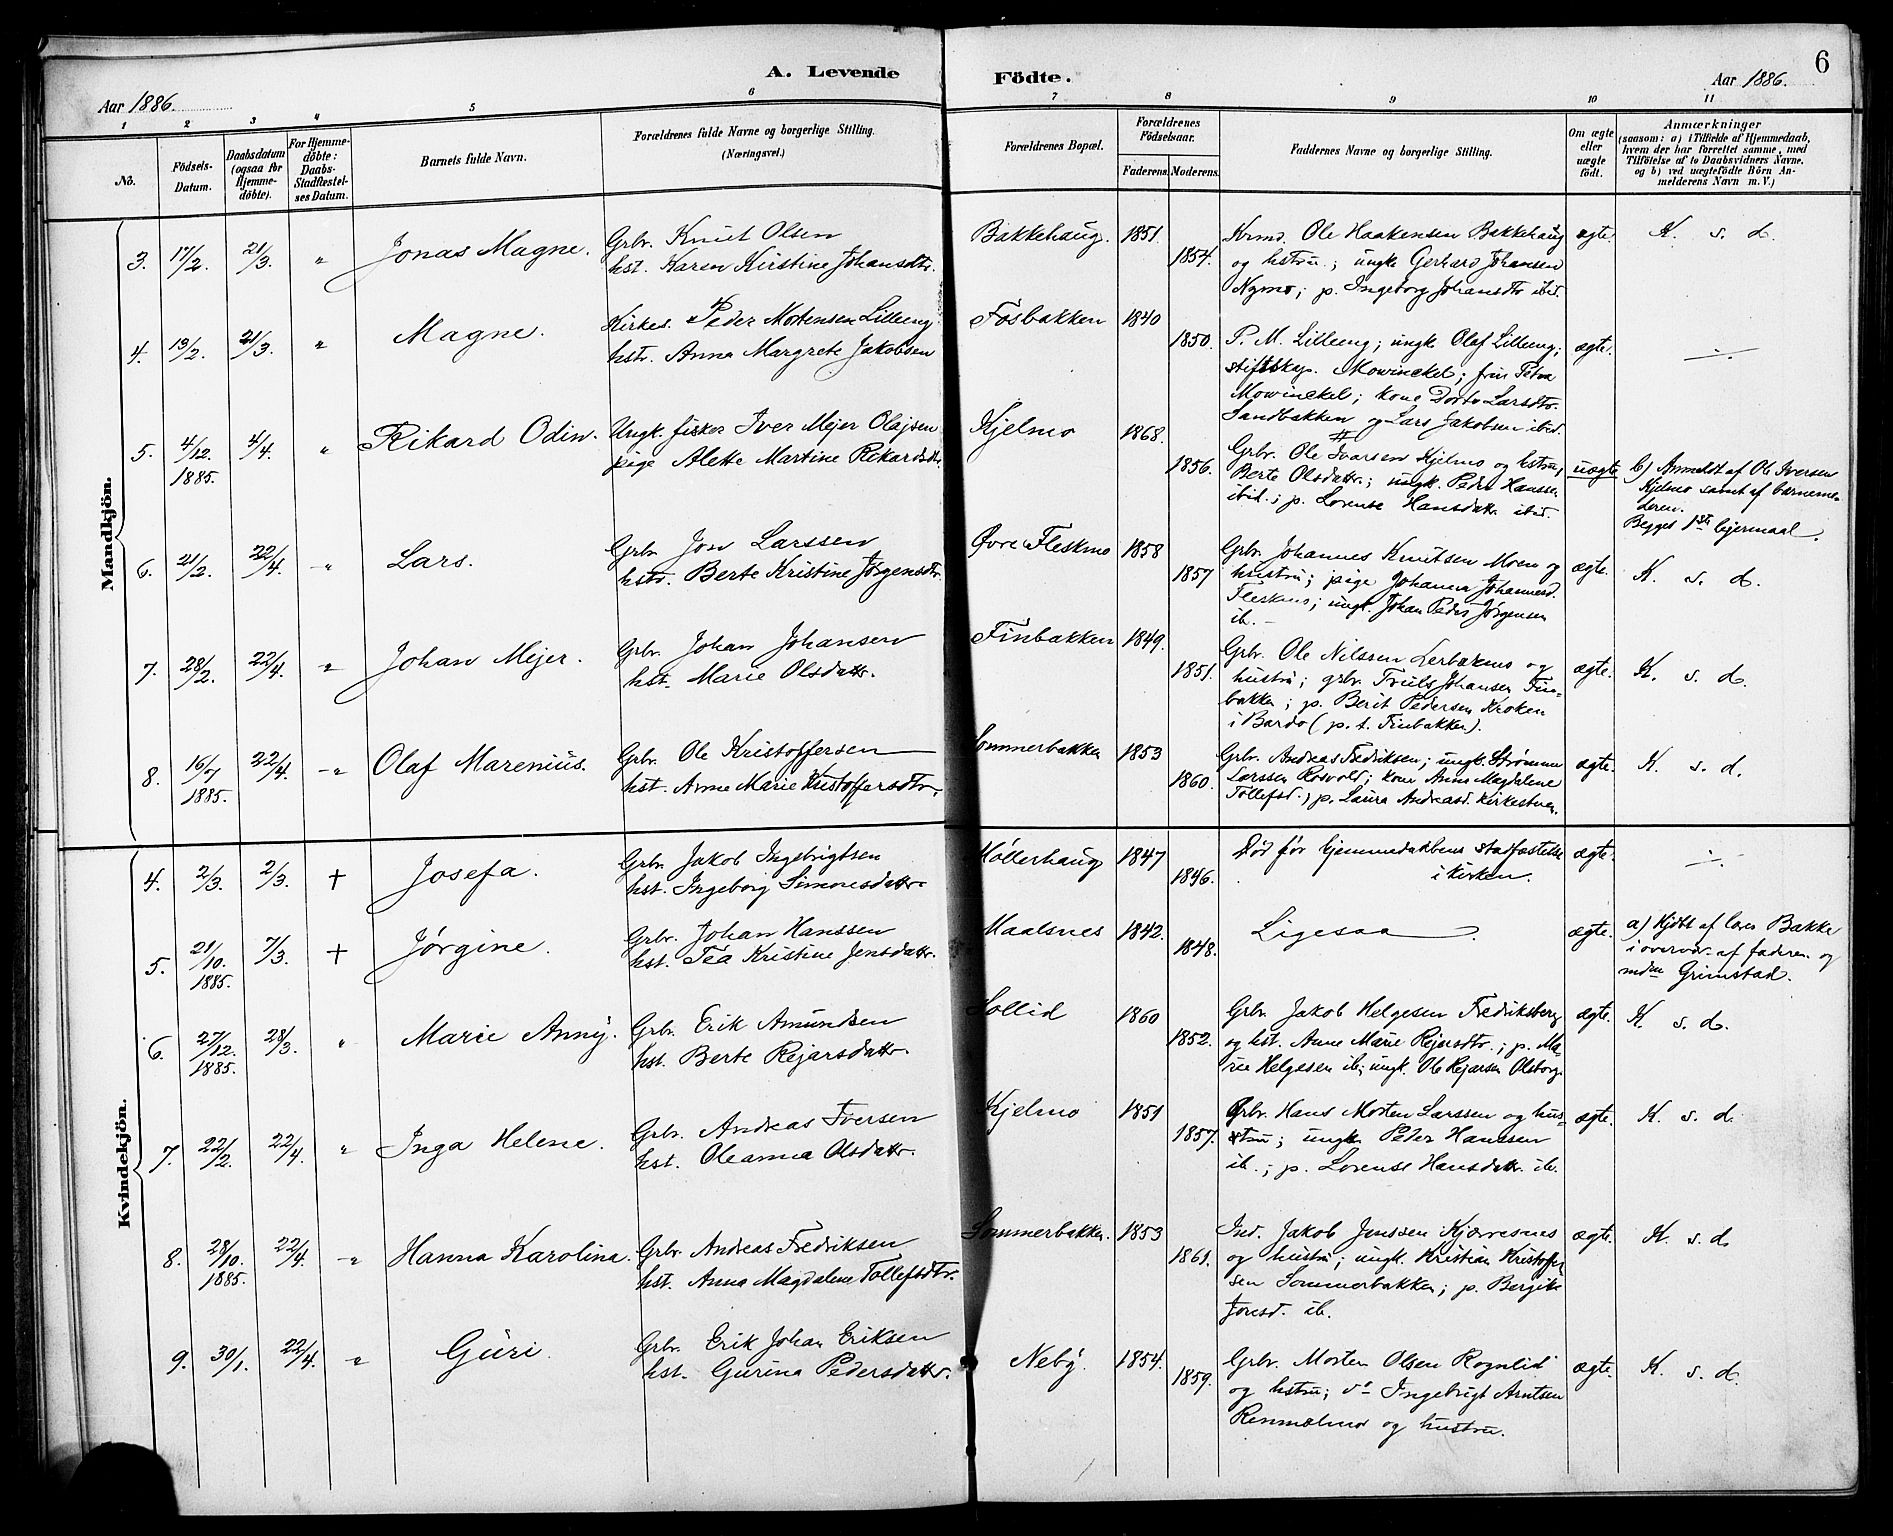 A. Levende Födte.
6
Aar 1886.
Aar 1886.
1 2 3 4 5 6 7 8 9 10 11
No.
Födsels-Datum.
Daabsdatum (ogsaa for Hjemmedöbte).
For Hjemmedöbte: Daabs-Stadfæstelses Datum.
Barnets fulde Navn.
Forældrenes fulde Navne og borgerlige Stilling. (Næringsvei.)
Forældrenes Bopæl.
Forældrenes Födselsaar.
Faderens. Moderens.
Faddernes Navne og borgerlige Stilling.
Om ægte eller uægte födt.
Anmærkninger
(saasom: a) i Tilfælde af Hjemmedaab,
hvem der har forrettet samme, med
Tilföielse af to Daabsvidners Navne.
og b) ved uægtefödte Börn Anmelderens Navn m. V.)
Mandkjön.
3. 17/2. 21/3. " Jonas Magne. Grbr. Knut Olsen
hst. Karen Kirstine Johansdtr.
Bakkehaug. 1851. 1854.
Krmd. Ole Haakensen Bakkehaug
og hstru.; ungk. Gerhard Johansen
Nymo; p. Ingeborg Johansdtr ibid.
ægte. K. s. d.
4. 13/2. 21/3. " Magne. Kirkes. Peder Mortensen Lilleeng
hstr. Anna Margrete Jakobsen
Fosbakken 1840 1850.
P. M. Lilleeng; ungk Olaf Lilleeng;
stiftskap. Mowinckel; fru Petra
Mowinckel; kone Dorte Larsdtr.
Sandbakken og Lars Jakobsen ibid.
ægte. ÷
5. 4/12. 1885. 4/4. " Rikard Odin. Ungk. fisker Iver Mejer Olajsen
pige Alette Martine Rikardsdtr.
Kjelmo 1868. 1856.
Grbr. Ole Ivarsen Kjelmo og hstru,
Berte Olsdattr.; ungk. Peder Hanssen
ibid.; p. Lorense Hansdattr ibid.
uægte b) Anmeldt af Ole Iversen
Kjelmo samt af barnemo-
deren.
Begges 1ste lejermaal.
6. 21/2. 22/4. " Lars. Grbr. Jon Larssen
hstr. Berte Kristine Jørgensdtr.
Øvre Fleskmo 1858 1857
Grbr. Johannes Knutsen Moen og
hustru; pige Johanna Johannesd.
Fleskmo; ungk. Johan Peder Jørgensen
ib.
ægte. K. s. d.
7. 28/2. 22/4. " Johan Mejer. Grbr. Johan Johansen
hst. Marie Olsdattr.
Finbakken 1849. 1851.
Grbr. Ole Nilssen Lerbækmo og
hustru; grbr. Truls Johansen Fin-
bakken; p. Berit Pedersen Kroken
i Bardo (p. t. Finbakken).
ægte. K. s. d.
8. 16/7 1885. 22/4. " Olaf Marenius. Grbr. Ole Kristoffersen
hst. Anne Marie Kristoffersdtr.
Sommerbakken 1853 1860.
Grbr. Andreas Fredriksen; ungk. Strømme
Larssen Rosvold; kone Anne Magdalene
Tollefsd.; p. Laura Andreasd. Kirkestuen.
ægte. K. s. d.
Kvindekjön.
4. 2/3. 2/3. + Josefa. Grbr. Jakob Ingebrigtsen
hst. Ingeborg Simonsdattr.
Møllerhaug 1847 1846.
Død før hjemmedaabens stadfæstelse
i kirken.
ægte. ÷
5. 21/10. 1885. 7/3. + Jørgine. Grbr. Johan Hanssen
hst. Tea Kristine Jensdattr.
Maalsnes 1842. 1848.
Ligesaa.
ægte. a) Hjdbt af Bakke
i overvær. af faderen og
Grimstad.
6. 27/12. 1885. 28/3. " Marie Anny. Grbr. Erik Amundsen
hst. Berte Rejarsdattr.
Sollid 1860 1852.
Grbr. Jakob Helgesen Fredriksberg
og hst. Anne Marie Rejersdtr.; p. Ma-
rie Helgesen ib; ungk. Ole Rejarsen Olsborg.
ægte. K. s. d.
7. 22/2. 22/4. " Inga Helene. Grbr. Andreas Iversen
hst. Oleanna Olsdattr.
Kjelmo 1851 1857.
Grbr. Hans Morten Larssen og hu-
stru; ungk Peder Hanssen
ib.; p. Lorense Hansdattr. ib.
ægte. K. s. d.
8. 28/10. 1885. 22/4. " Hanna Karolina. Grbr. Andreas Fredriksen
hst. Anna Magdalene Tollefsdtr.
Sommerbakken. 1853 1861.
Ind. Jakob Jenssen Kjærvesnes
og hustru; ungk. Kristian Kristoffer-
sen Sommerbakken; p. Bergitte
Joresd. ib.
ægte. K. s. d
9. 30/1. 22/4. " Guri. Grbr. Erik Johan Eriksen
hst. Gurina Pedersdattr.
Neby. 1854. 1859.
Grbr. Morten Olsen Rognlid
og hstru; do Ingebrigt Arntsen
Renmælmo og hustru.
ægte. K. s. d.